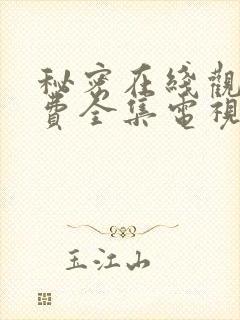 秘密在綫觀
費全集電視
玉江山